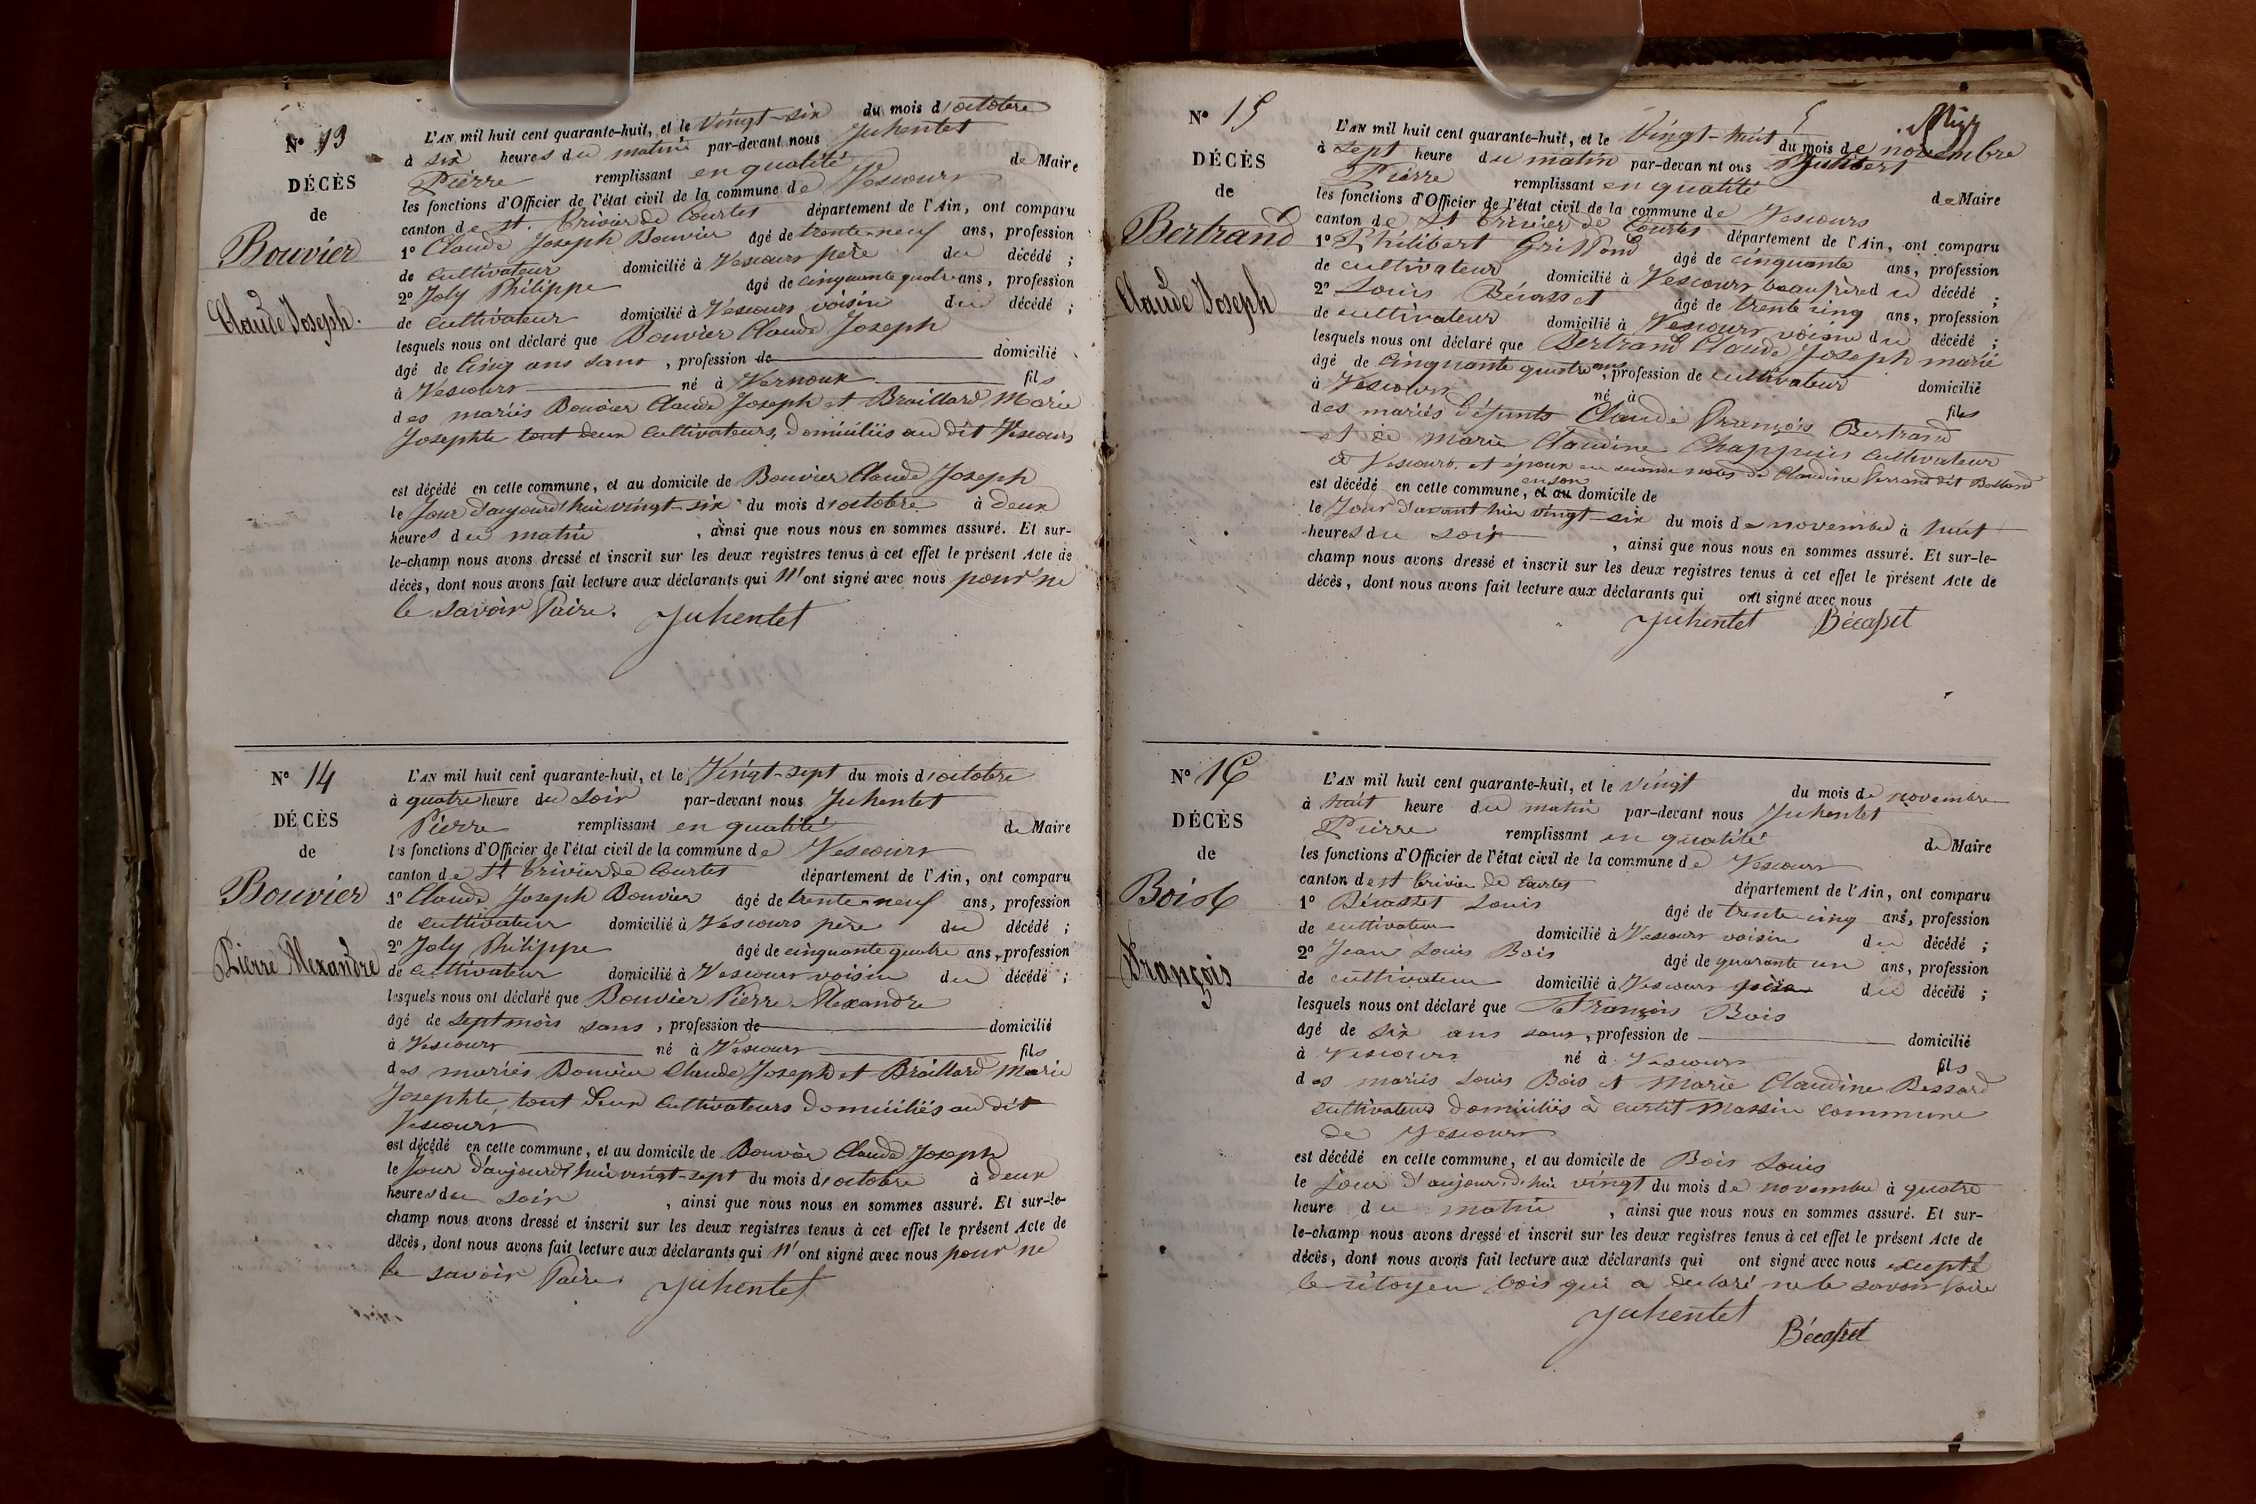 N° 13
DÉCÈS
de
Bouvier
Claude Joseph.
L'AN mil huit cent quarante-huit, et le vingt-six du mois d'octobre
à six heures du matin par-devant nous Juhentet
Pierre remplissant en qualité de Maire
les fonctions d'Officier de l'état civil de la commune de Vescours
canton de St. Trivier de Courtes département de l'Ain, ont comparu
1° Claude Joseph Bouvier âgé de trente-neuf ans, profession
de cultivateur domicilié à Vescours père du décédé ;
2° Joly Philippe âgé de cinquante quatre ans, profession
de cultivateur domicilié à Vescours voisin du décédé ;
lesquels nous ont déclaré que Bouvier Claude Joseph
âgé de Cinq ans sans , profession de domicilié
à Vescours né à Vernoux fils
des mariés Bouvier Claude Joseph et Braillard Marie
Josephte tout deux Cultivateurs, domiciliés au dit Vescours
est décédé en cette commune, et au domicile de Bouvier Claude Joseph
le Jour d'aujourd'hui vingt-six du mois d'octobre à deux
heures du matin , ainsi que nous nous en sommes assuré. Et sur-
le-champ nous avons dressé et inscrit sur les deux registres tenus à cet effet le présent Acte de
décès, dont nous avons fait lecture aux déclarants qui n'ont signé avec nous pour ne
le savoir faire. Juhentet
N° 14
DÉCÈS
de
Bouvier
Pierre Alexandre
L'AN mil huit cent quarante-huit, et le Vingt-sept du mois d'octobre
à quatre heure du soir par-devant nous Juhentet
Pierre remplissant en qualité de Maire
les fonctions d'Officier de l'état civil de la commune de Vescours
canton de St Trivier de Courtes département de l'Ain, ont comparu
1° Claude Joseph Bouvier âgé de trente-neuf ans, profession
de cultivateur domicilié à Vescours père du décédé ;
2° Joly Philippe âgé de cinquante quatre ans, profession
de cultivateur domicilié à Vescours voisin du décédé ;
lesquels nous ont déclaré que Bouvier Pierre Alexandre
âgé de sept mois sans , profession de domicilié
à Vescours né à Vescours fils
des mariés Bouvier Claude Joseph et Braillard Marie
Josephte, tout deux Cultivateurs domiciliés au dit
Vescours
est décédé en cette commune, et au domicile de Bouvier Claude Joseph
le Jour d'aujourd'hui vingt-sept du mois d'octobre à deux
heures du soir , ainsi que nous nous en sommes assuré. Et sur-le-
champ nous avons dressé et inscrit sur les deux registres tenus à cet effet le présent Acte de
décès, dont nous avons fait lecture aux déclarants qui n'ont signé avec nous pour ne
le savoir faire. Juhentet
N° 15
DÉCÈS
de
Bertrand
Claude Joseph
L'AN mil huit cent quarante-huit, et le Vingt-huit du mois de novembre
à sept heure du matin par-devan nt ous Juhentet
Pierre remplissant en qualité de Maire
les fonctions d'Officier de l'état civil de la commune de Vescours
canton de St Trivier de Courtes département de l'Ain, ont comparu
1° Philibert Griffond âgé de cinquante ans, profession
de cultivateur domicilié à Vescours beaufrère du décédé ;
2° Louis Bécasset âgé de trente cinq ans, profession
de cultivateur domicilié à Vescours voisin du décédé ;
lesquels nous ont déclaré que Bertrand Claude Joseph marié
âgé de Cinquante quatre ans, profession de cultivateur domicilié
à Vescours né à fils
des mariés défunts Claude François Bertrand
et de Marie Claudine Chappuis cultivateur
à Vescours. et époux en seconde noces de Claudine Ferrand dit Bolland
est décédé en cette commune, et au en son domicile de
le Jour d'avant hier vingt-six du mois de novembre à huit
heures du soir , ainsi que nous nous en sommes assuré. Et sur-le-
champ nous avons dressé et inscrit sur les deux registres tenus à cet effet le présent Acte de
décès, dont nous avons fait lecture aux déclarants qui ont signé avec nous
Juhentet Bécasset
N° 16
DÉCÈS
de
Bois
François
L'AN mil huit cent quarante-huit, et le vingt du mois de novembre
à huit heure du matin par-devant nous Juhentet
Pierre remplissant en qualité de Maire
les fonctions d'Officier de l'état civil de la commune de Vescours
canton de St Trivier de Courtes département de l'Ain, ont comparu
1° Bécasset Louis âgé de trente-cinq ans, profession
de cultivateur domicilié à Vescours voisin du décédé ;
2° Jean Louis Bois âgé de quarante un ans, profession
de cultivateur domicilié à Vescours père du décédé ;
lesquels nous ont déclaré que François Bois
âgé de six ans sans, profession de domicilié
à Vescours né à Vescours fils
des mariés Louis Bois et Marie Claudine Bessard
cultivateurs domiciliés à curtit Massin commune
de Vescours
est décédé en cette commune, et au domicile de Bois Louis
le Jour d'aujourd'hui vingt du mois de novembre à quatre
heure du matin , ainsi que nous nous en sommes assuré. Et sur-
le-champ nous avons dressé et inscrit sur les deux registres tenus à cet effet le présent Acte de
décès, dont nous avons fait lecture aux déclarants qui ont signé avec nous excepté
le citoyen bois qui a declaré ne le savoir faire
Juhentet
Bécasset